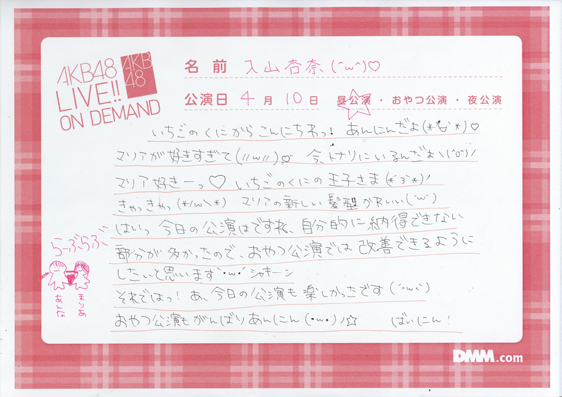 AKB48
LIVE!!
ON DEMAND
AKB
48
名前 入山杏奈(^ω^)♡
公演日 4月10日 昼公演・おやつ公演・夜公演
いちごのくにからこんにちわっ! あんにんだよ(*'▽'*)♡
マリアが好きすぎて(//ω//)♡ 今、トナリにいるんだよヽ(^o^)ノ
マリア好きーっ♡ いちごのくにの王子さま(*´з`*)
きゃっきゃっ(*/ω\*) マリアの新しい髪型かわいい(´ω`)
はいっ 今日の公演はですね、自分的に納得できない
部分が多かったので、おやつ公演では改善できるように
したいと思います`・ω・´シャキーン
それではっ! あ、今日の公演も楽しかったです(´ω`)
おやつ公演もがんばりあんにん(・ω・)ノ☆ ばいにん!
らーぶらぶ
まりあ
あんな
DMM.com